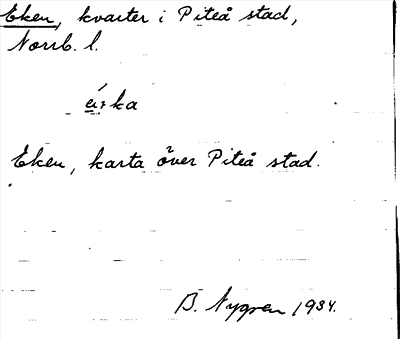 Eken, kvarter i Piteå stad,
Norrb. l.
Eken, karta över Piteå stad.
B. Nygren 1934.